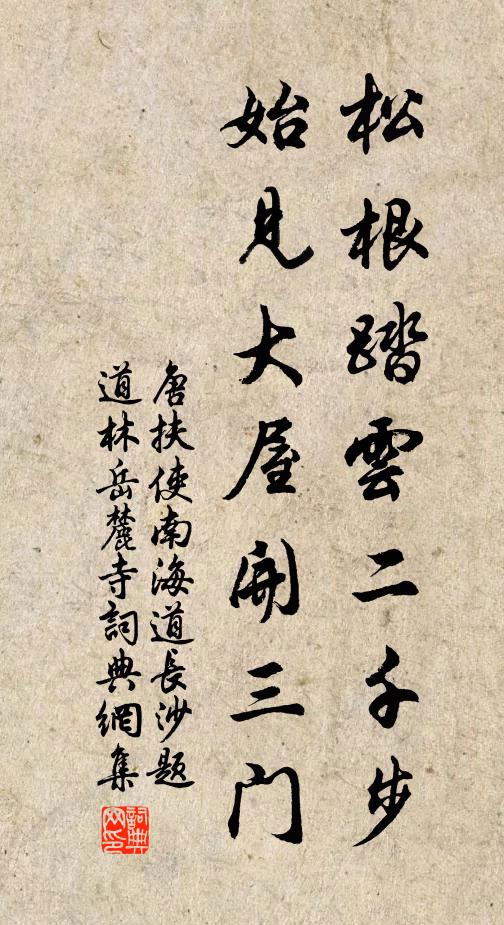 松根踏雲二千步
始見大屋開三门
唐扶使南海道長沙題
道林岳麓寺詞典網集
詞典
网印